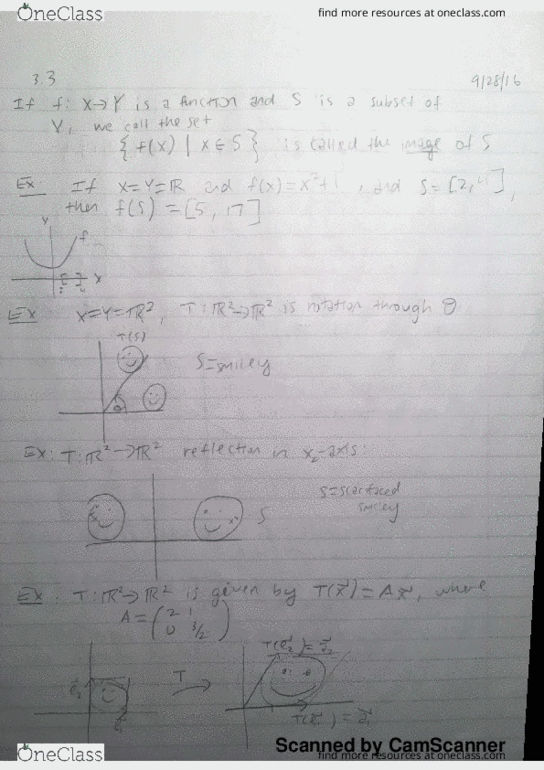 OneClass
find more resources at oneclass.com
3.3
9/28/16
If f: X→Y is a function and S is a subset of
Y, we call the set
{ f(x) | x ∈ S } is called the image of S
Ex If X=Y=ℝ and f(x)=x²+1, and S=[2,4],
then f(S) = [5, 17]
y
f
x
Ex X=Y=ℝ², T:ℝ²→ℝ² is rotation through θ
T(S)
S=smiley
θ
Ex: T:ℝ²→ℝ² reflection in x₂-axis:
S=scarfaced
smiley
S
Ex: T:ℝ²→ℝ² is given by T(x⃗)=Ax⃗, where
A = (2 1
0 3/2)
T(e⃗₂) =
e⃗₂
T
e⃗₁
T(e⃗₁) =
Scanned by CamScanner
OneClass
find more resources at oneclass.com